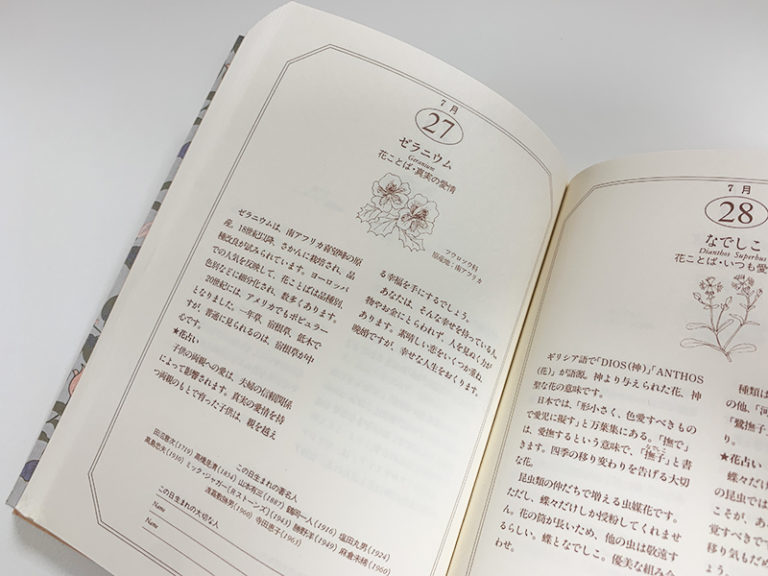 7月
27
ゼラニウム
Geranium
花ことば・真実の愛情
フウロソウ科
原産地:南アフリカ
ゼラニウムは、南アフリカ喜望峰の原
産。18世紀以降、さかんに栽培され、品
種改良が試みられています。ヨーロッパ
での人気を反映して、花ことばは品種別、
色別などに細分化され、数多くあります。
20世紀には、アメリカでもポピュラー
となりました。一年草、宿根草、低木で
すが、普通に見られるのは、宿根草が中
心です。
★花占い
子供の両親への愛は、夫婦の信頼関係
によって影響されます。真実の愛情を持
つ両親のもとで育った子供は、親を越え
る幸福を手にするでしょう。
あなたは、そんな幸せを持っている人。
物やお金にとらわれず、人を見ぬく力が
あります。素晴しい恋をいくつか重ね、
晩婚ですが、幸せな人生をおくります。
この日生まれの著名人
田沼意次(1719) 高橋是清(1854) 山本有三(1887) 鶴岡一人(1916) 塩田丸男(1924)
高島忠夫(1930) ミック・ジャガー[R・ストーンズ](1943) 勝野洋(1949) 麻倉未稀(1960)
渡嘉敷勝男(1960) 寺田恵子(1963)
この日生まれの大切な人
Name
Name
7月
28
なでしこ
Dianthus Superbus
花ことば・いつも愛
ギリシア語で「DIOS(神)」「ANTHOS
(花)」が語源。神より与えられた花、神
聖な花の意味です。
日本では、「形小さく、色愛すべきもの
で愛児に擬す」と万葉集にある。「撫で」
は、愛撫するという意味で、「撫子」と書
なでしこ
きます。四季の移り変わりを告げる大切
な花。
昆虫類の仲だちで増える虫媒花です。
ただし、蝶々だけしか授粉してくれませ
ん。花の筒が長いため、他の虫は敬遠す
るらしい。蝶となでしこ。優美な組み合
わせ。
種類は
の他、「河
「鷺撫子」
り。
★花占い
の昆虫では
こそが、あ
覚すべきで
移り気もだめ
ょう。